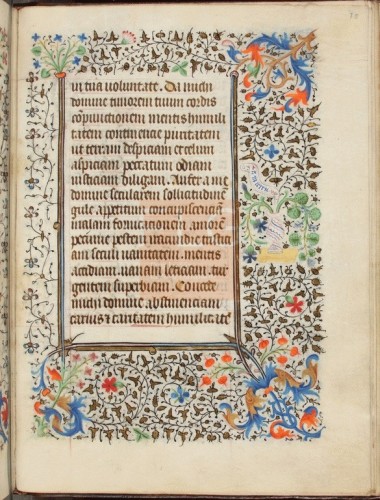 in tua voluntate. Da michi
domine timorem tuum cordis
compunctionem mentis humili
tatem conscientiae puritatem
ut terram despiciam et celum
aspiciam peccatum odiam
iusticiam diligam. Aufer a me
domine secularem sollicitudinē
gule appetitum concupiscenciam
malam fornicationem amorē
pecunie pestem iracundie tristici
am seculi vanitatem mentis
acidiam uanam leticiam tur
gentem superbiam Concede
michi domine abstinenciam
carius et castitatem humilitatē